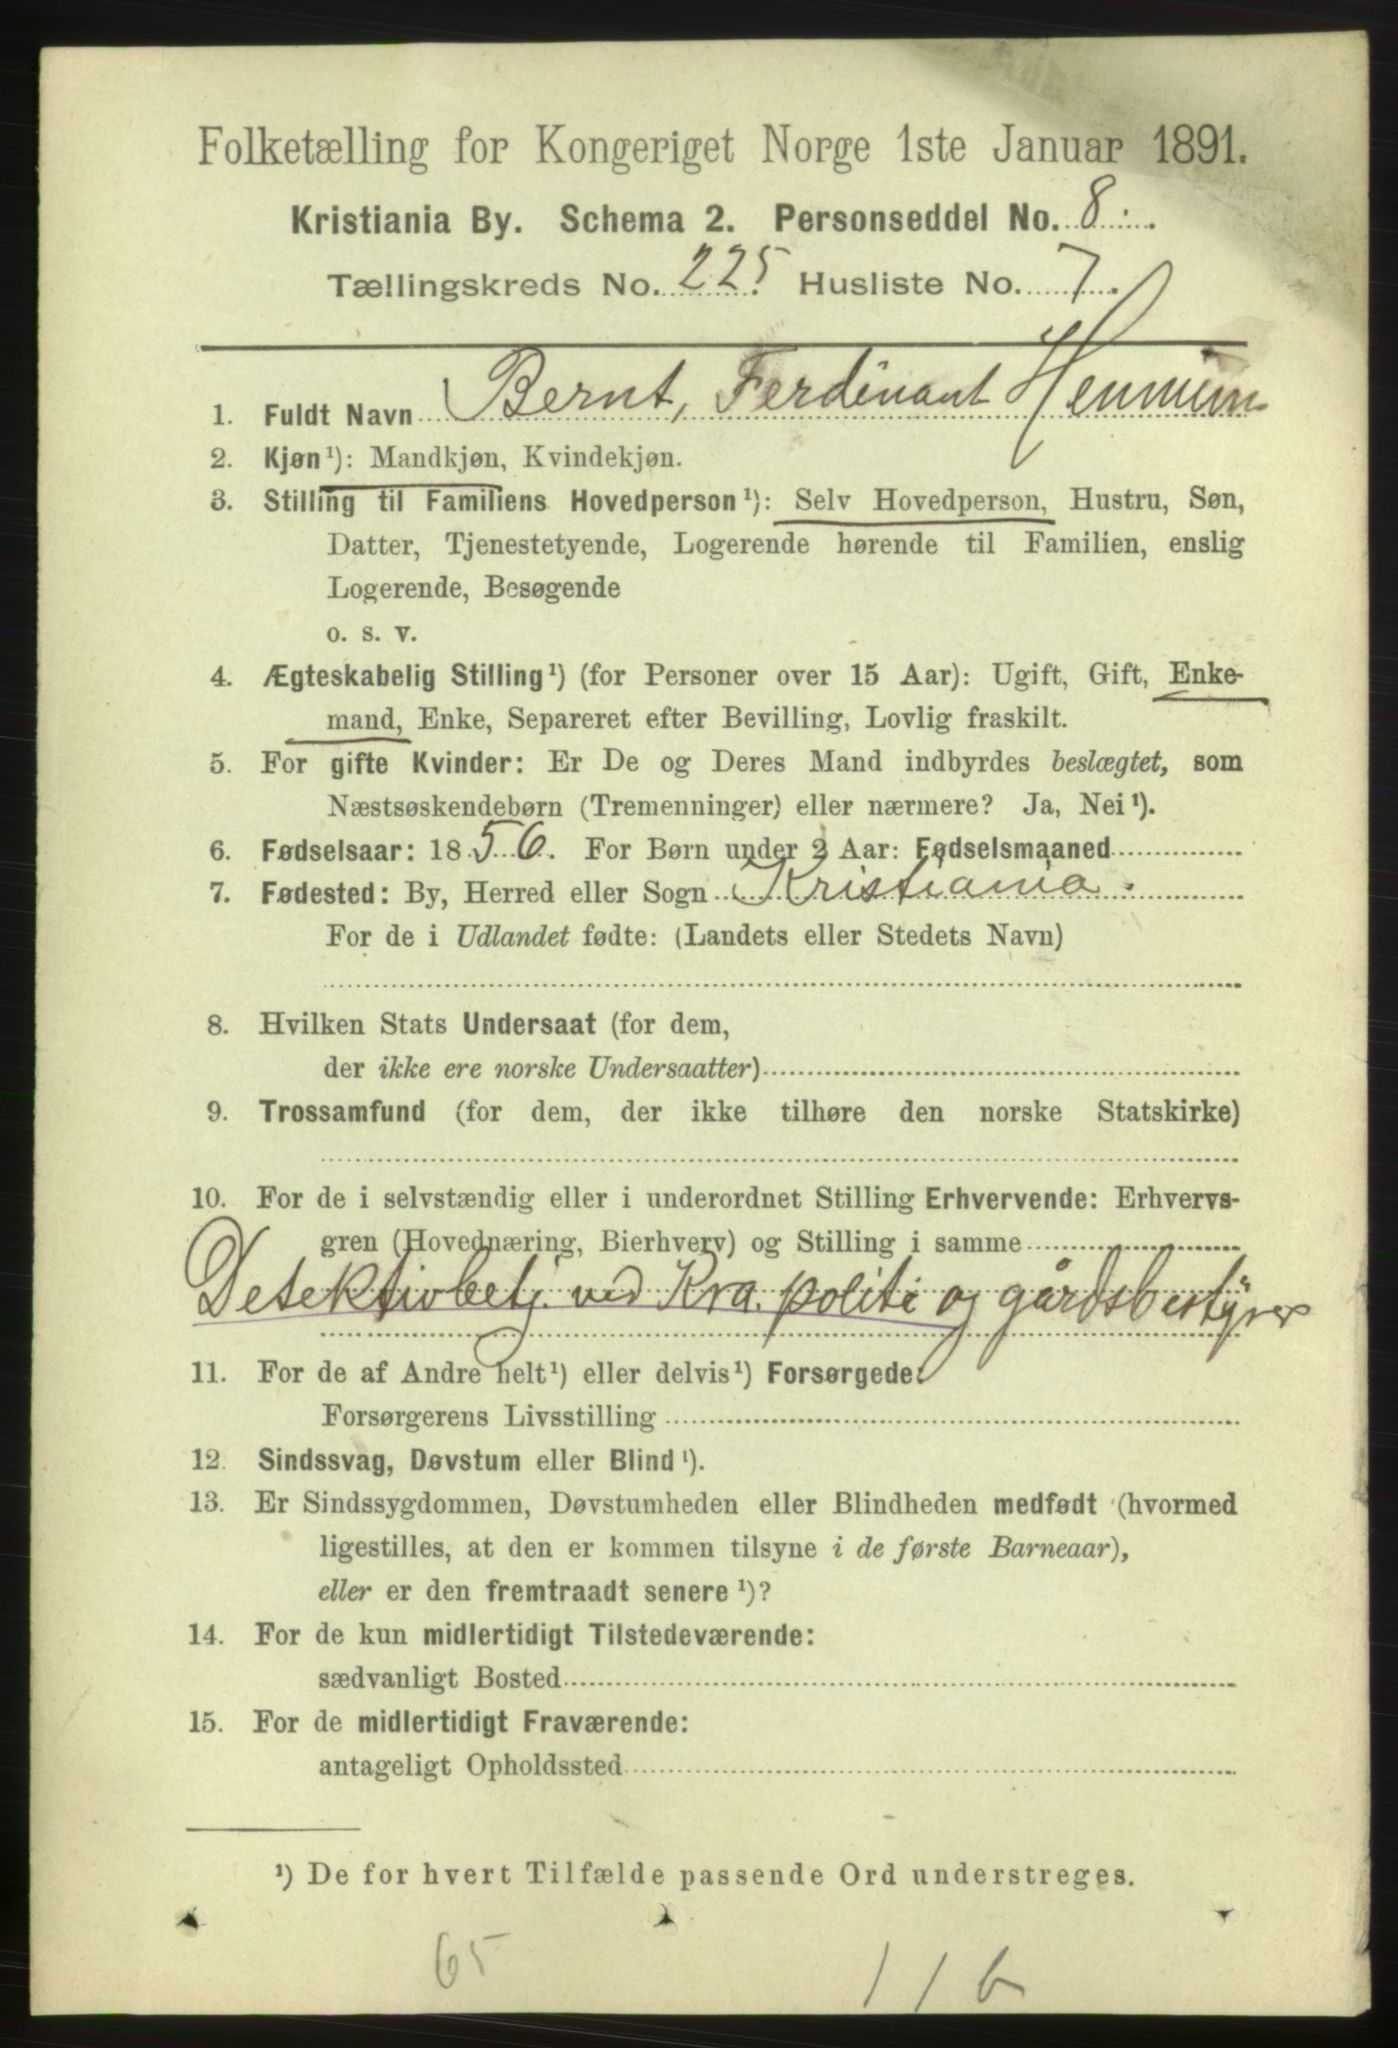 Folketælling for Kongeriget Norge 1ste Januar 1891.
Kristiania By. Schema 2. Personseddel No. 8.
Tællingskreds No. 225 Husliste No. 7.
1. Fuldt Navn Bernt, Ferdinant
2. Kjøn¹): Mandkjøn, Kvindekjøn.
3. Stilling til Familiens Hovedperson¹): Selv Hovedperson, Hustru, Søn,
Datter, Tjenestetyende, Logerende hørende til Familien, enslig
Logerende, Besøgende
o. s. v.
4. Ægteskabelig Stilling¹) (for Personer over 15 Aar): Ugift, Gift, Enke-
mand, Enke, Separeret efter Bevilling, Lovlig fraskilt.
5. For gifte Kvinder: Er De og Deres Mand indbyrdes beslægtet, som
Næstsøskendebørn (Tremenninger) eller nærmere? Ja, Nei¹).
6. Fødselsaar: 1856. For Børn under 2 Aar: Fødselsmaaned
7. Fødested: By, Herred eller Sogn Kristiania.
For de i Udlandet fødte: (Landets eller Stedets Navn)
8. Hvilken Stats Undersaat (for dem,
der ikke ere norske Undersaatter)
9. Trossamfund (for dem, der ikke tilhøre den norske Statskirke)
10. For de i selvstændig eller i underordnet Stilling Erhvervende: Erhvervs-
gren (Hovednæring, Bierhverv) og Stilling i samme
Detektivbetj. ved Kra. politi og gårdsbestyrer
11. For de af Andre helt¹) eller delvis¹) Forsørgede:
Forsørgerens Livsstilling
12. Sindssvag, Døvstum eller Blind¹).
13. Er Sindssygdommen, Døvstumheden eller Blindheden medfødt (hvormed
ligestilles, at den er kommen tilsyne i de første Barneaar),
eller er den fremtraadt senere¹)?
14. For de kun midlertidigt Tilstedeværende:
sædvanligt Bosted
15. For de midlertidigt Fraværende:
antageligt Opholdssted
¹) De for hvert Tilfælde passende Ord understreges.
65 116